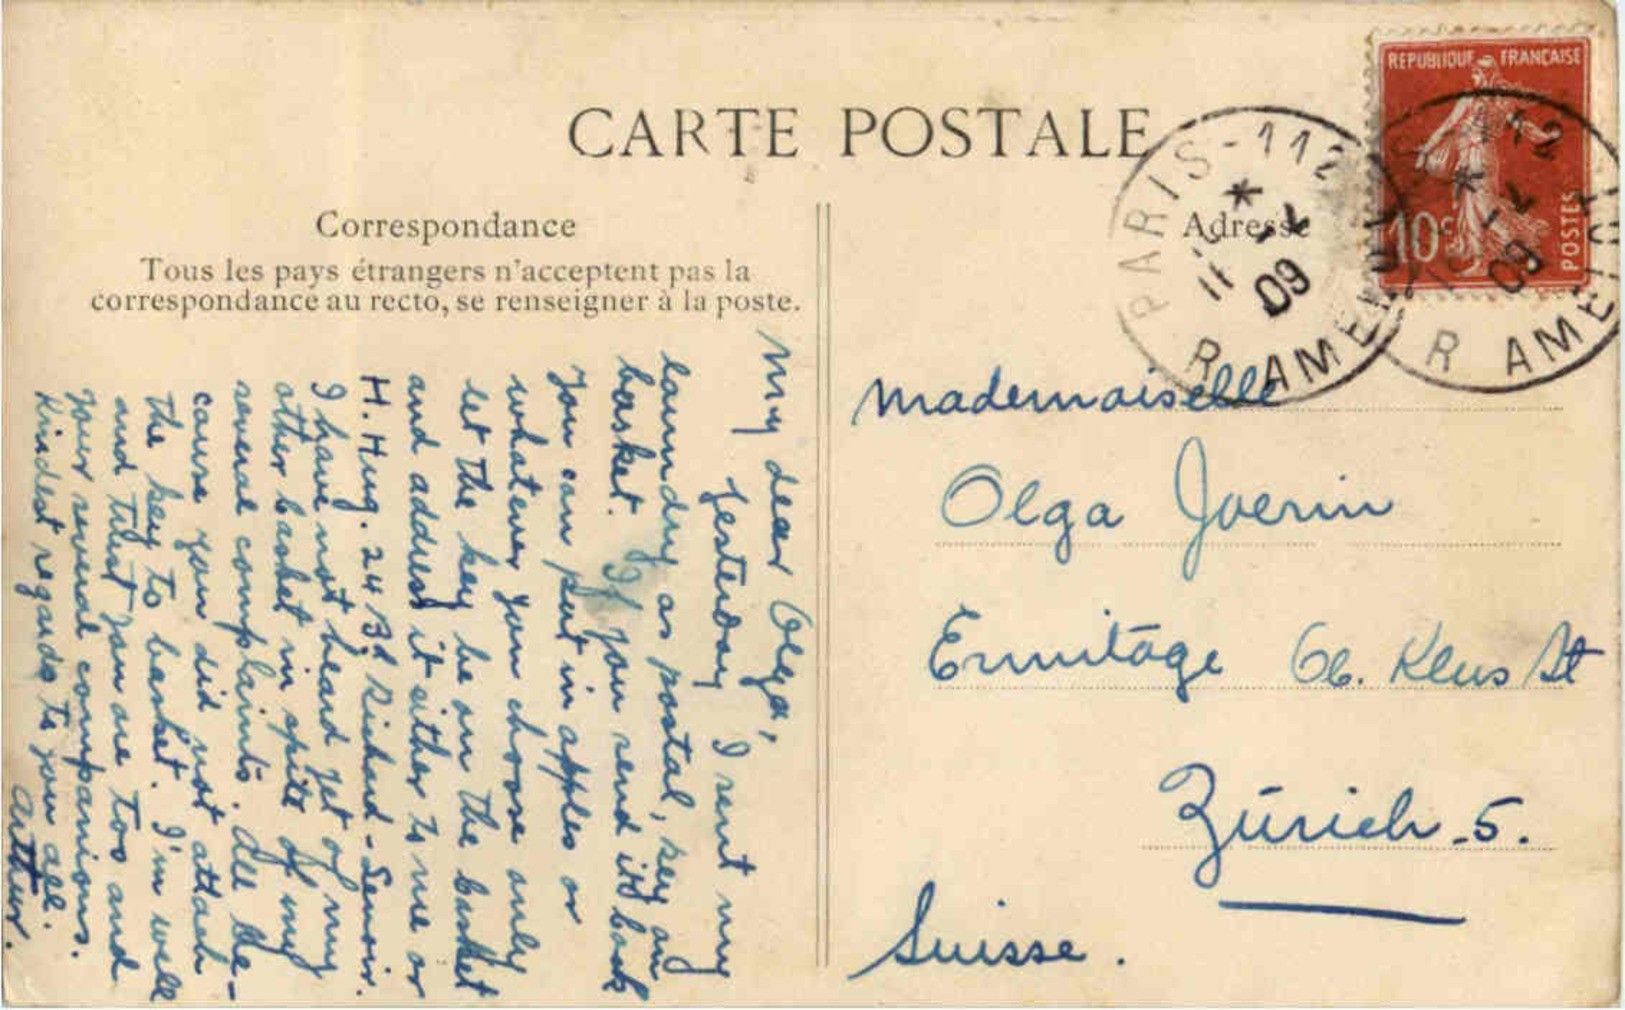 CARTE POSTALE
Correspondance
Tous les pays étrangers n'acceptent pas la
correspondance au recto, se renseigner à la poste.
My dear Olga,
Yesterday I sent my
laundry as postal, key on
basket. If you send it back
You can put in apples or
whatever you choose only
let the key be on the basket
and address it either to me or
H. Hug. 24 Bd Richard-Lenoir.
I have not heard yet of my
other basket in spite of my
several complaints. All be-
cause you did not attach
the key to basket. I'm well
and trust you are too and
your several companions.
Kindest regards to you all.
Arthur.
Adresse
Mademoiselle
Olga Joerin
Ermitage Ob. Klus St
Zürich-5.
Suisse.
REPUBLIQUE FRANÇAISE
10c
POSTES
PARIS-112
*
11
09
R AMELOT
12
*
09
R AMELOT